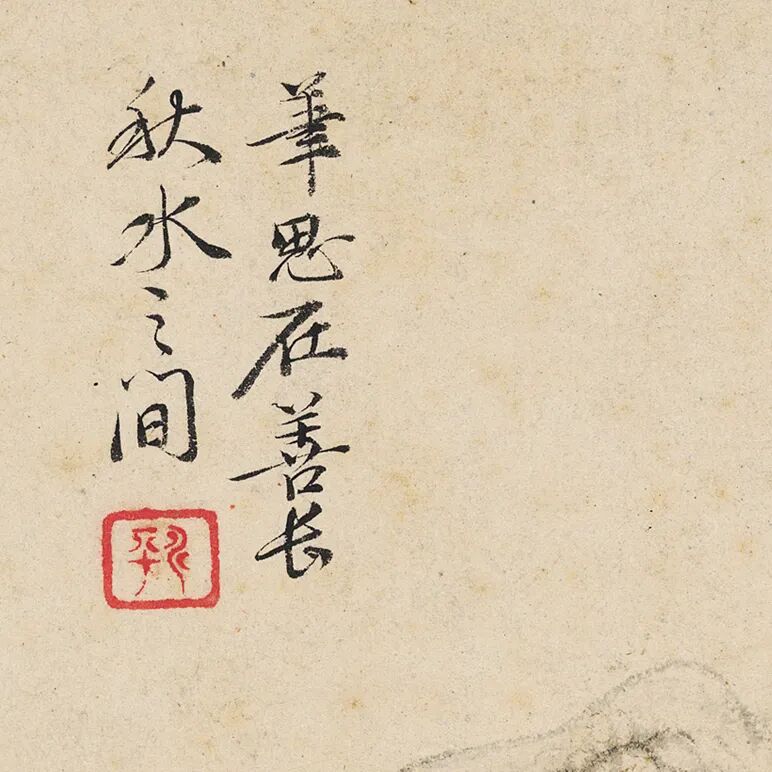 筆思在善长
秋水之间